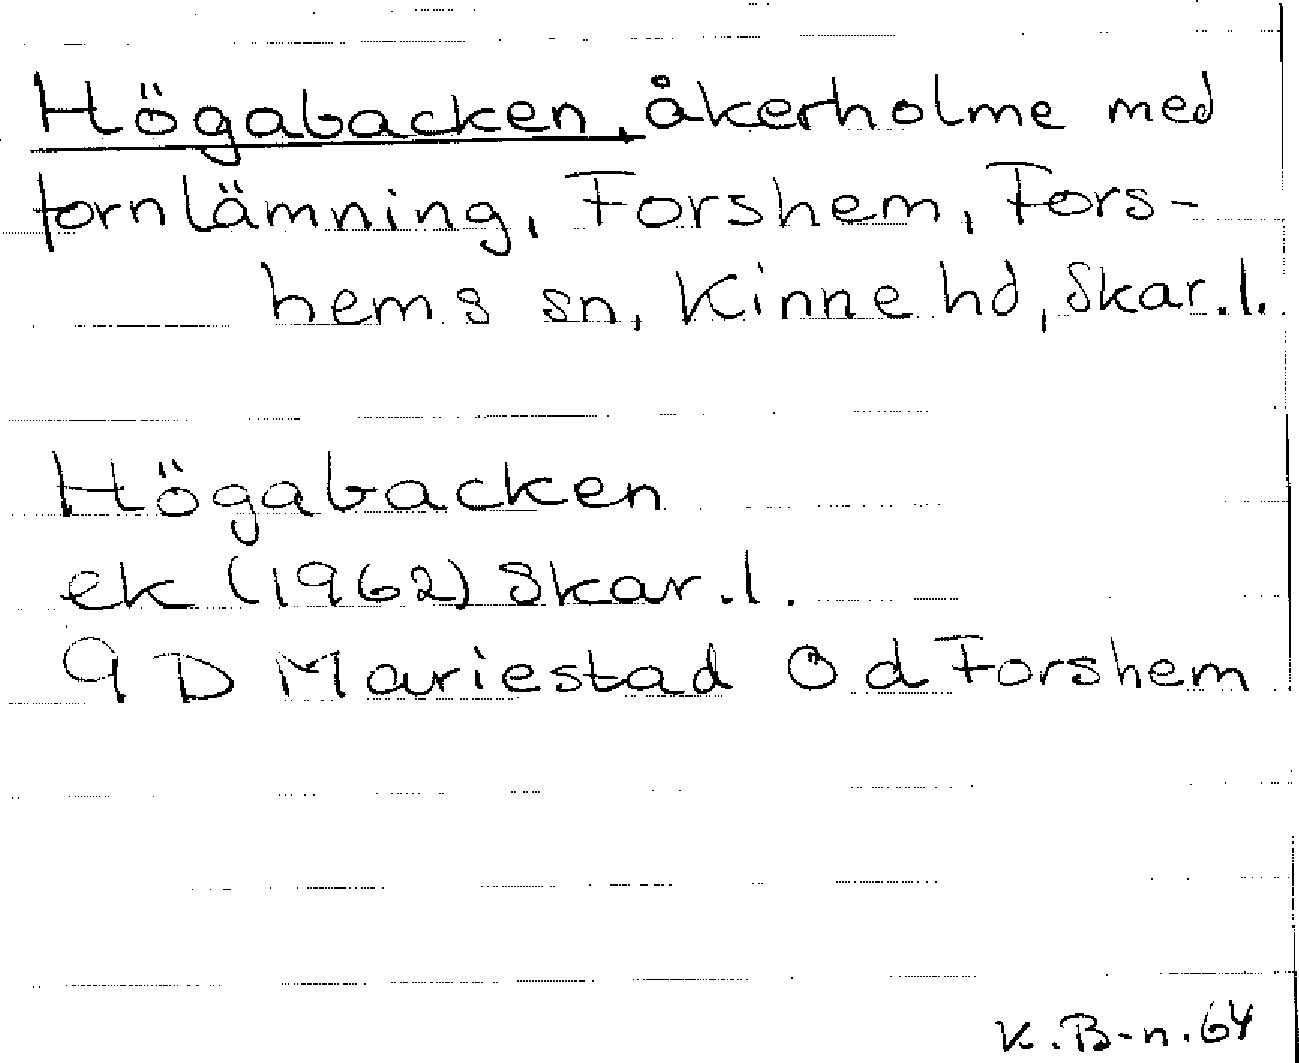 Högabacken, åkerholme med
fornlämning, Forshem, Fors-
hems sn, Kinne hd, Skar.l.
Högabacken
ek (1962) Skar.l.
9 D Mariestad 0 d Forshem
K.B-n.64